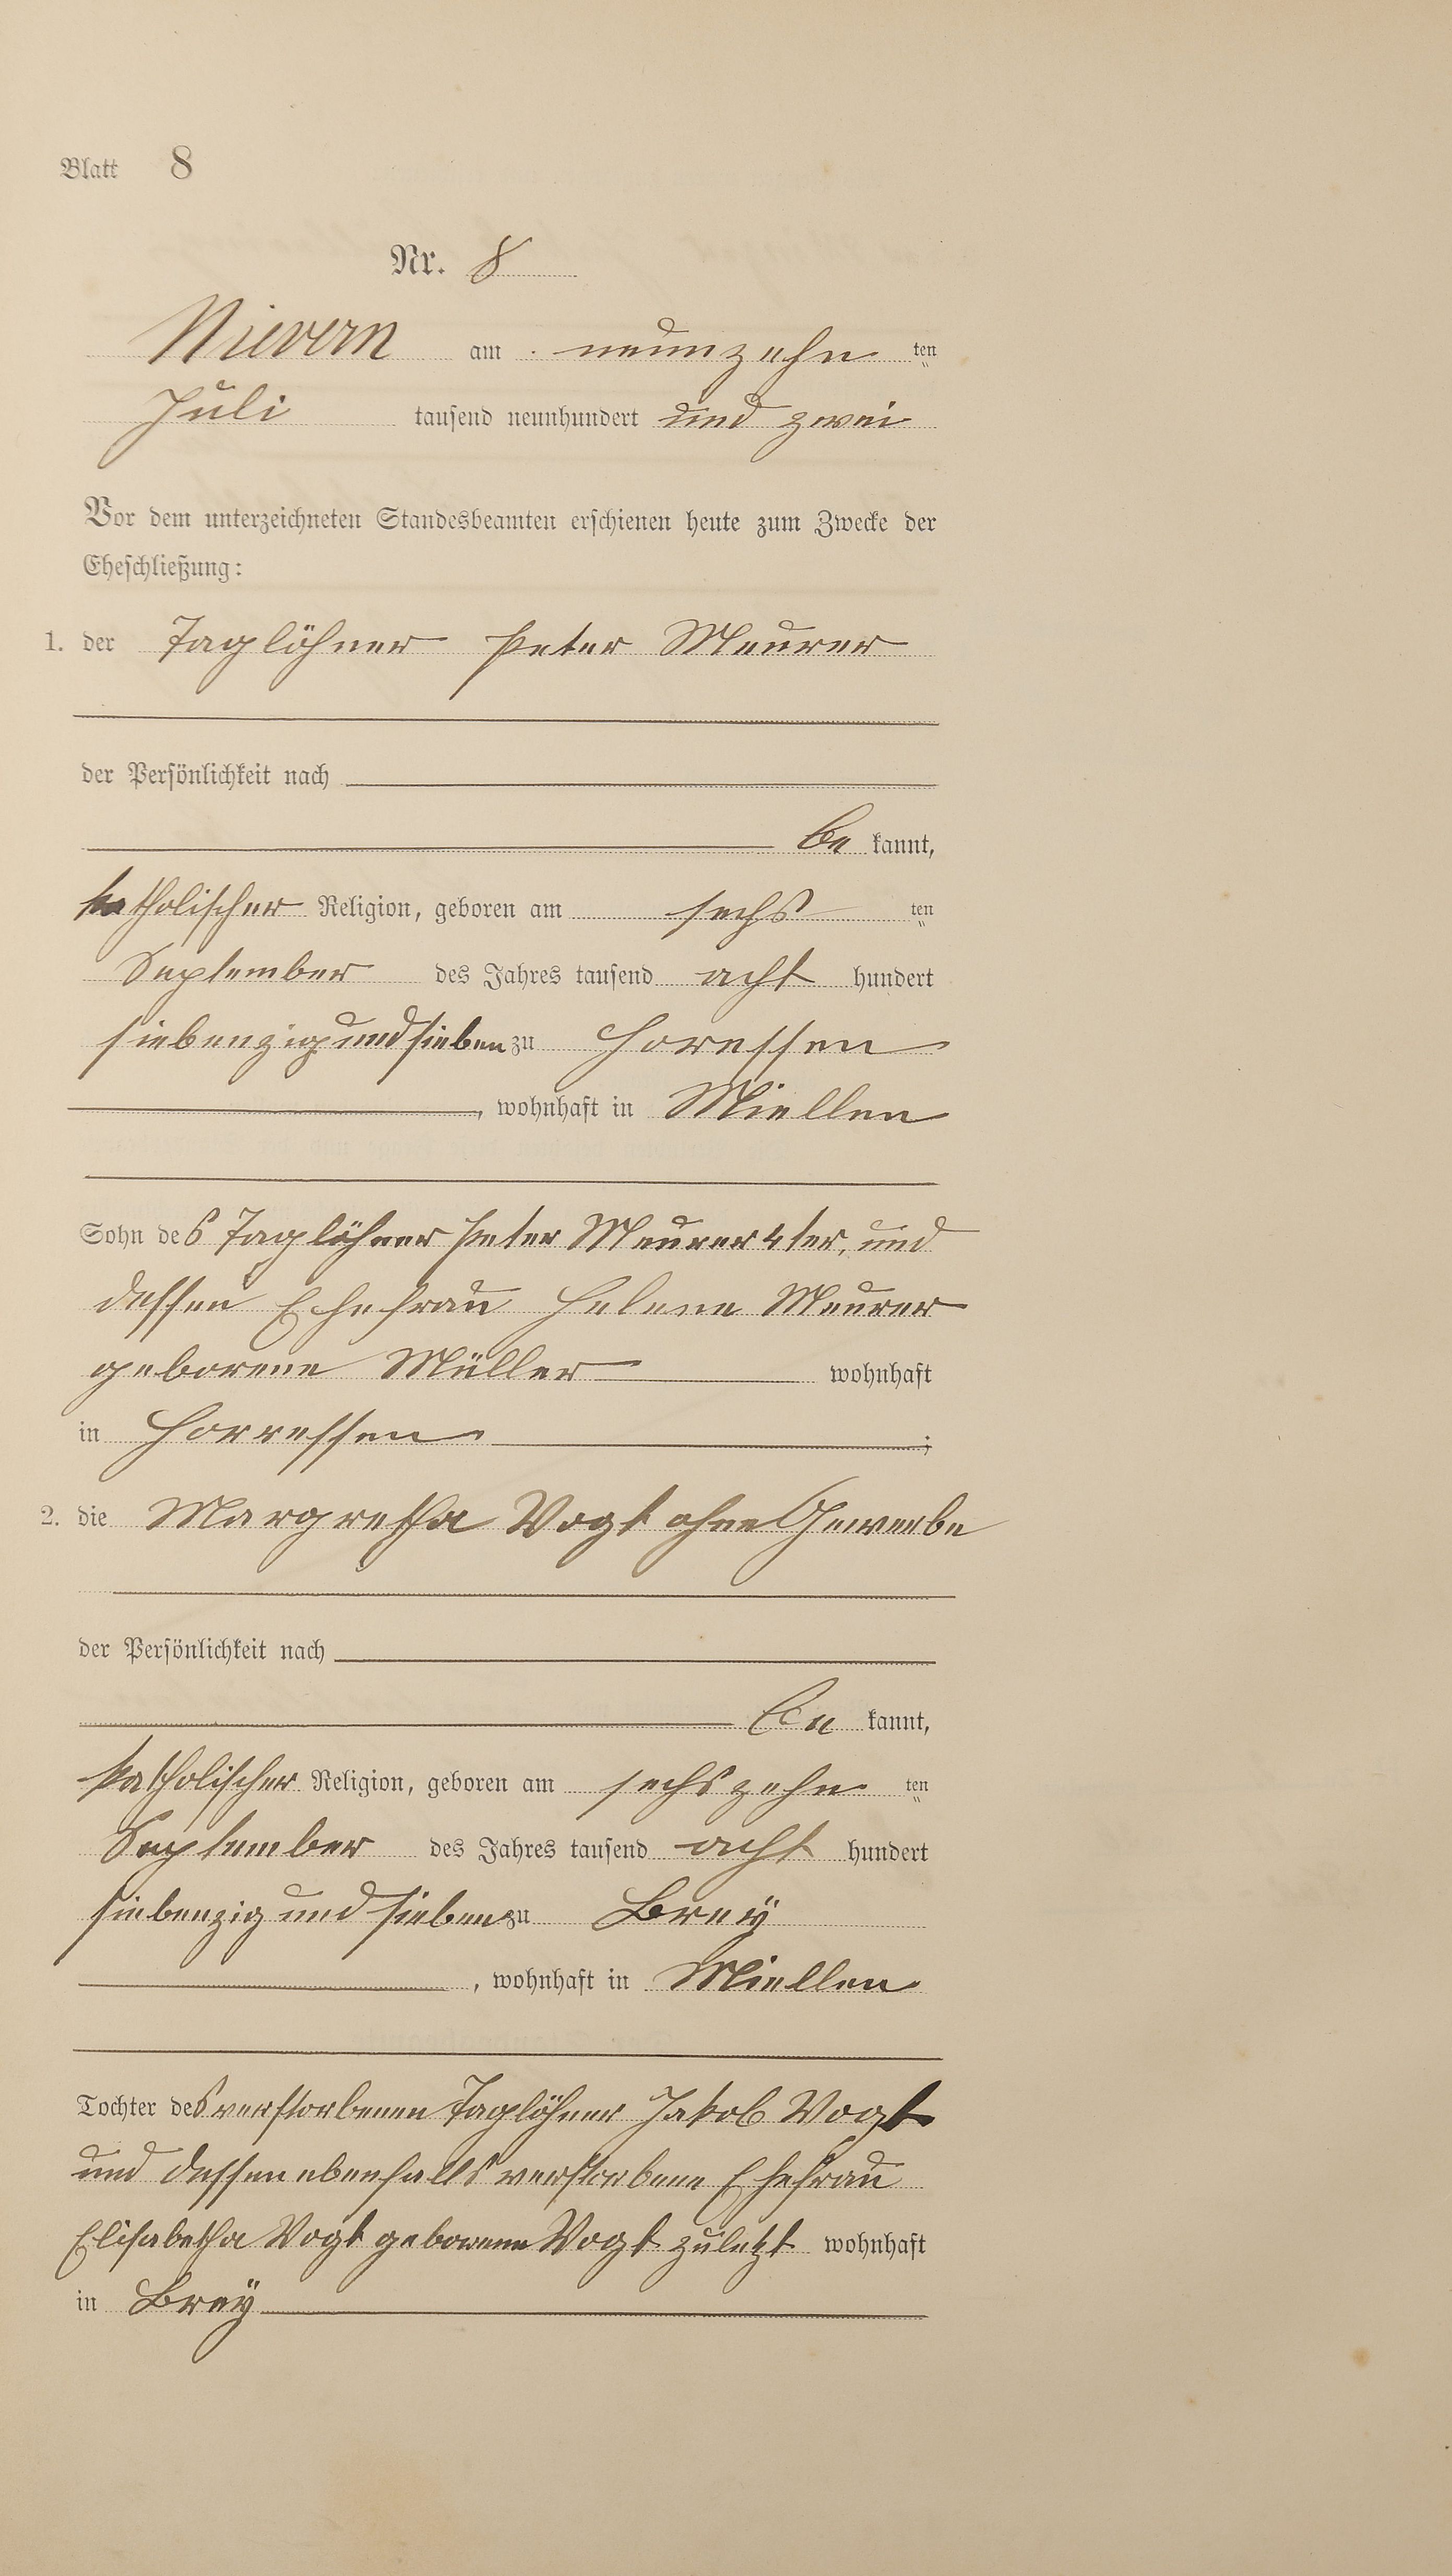 Blatt 8
Nr. 8
Nievern am neunzehn ten
Juli tausend neunhundert und zwei
Vor dem unterzeichneten Standesbeamten erschienen heute zum Zwecke der
Eheschließung:
1. der Taglöhner Peter Meurer
der Persönlichkeit nach
be kannt,
katholischer Religion, geboren am sechs ten
September des Jahres tausend acht hundert
siebenzig und sieben zu Horessen
, wohnhaft in Miellen
Sohn des Taglöhner Peter Meurer 4ter, und
dessen Ehefrau Helene Meurer
geborene Müller wohnhaft
in Horressen ;
2. die Margretha Vogt ohne Gewerbe
der Persönlichkeit nach
be kannt,
katholischer Religion, geboren am sechszehn ten
September des Jahres tausend acht hundert
siebenzig und sieben zu Breÿ
, wohnhaft in Miellen
Tochter des verstorbenen Taglöhner Jakob Vogt
und dessen ebenfalls verstorbene Ehefrau
Elisabetha Vogt geborene Vogt zuletzt wohnhaft
in Breÿ